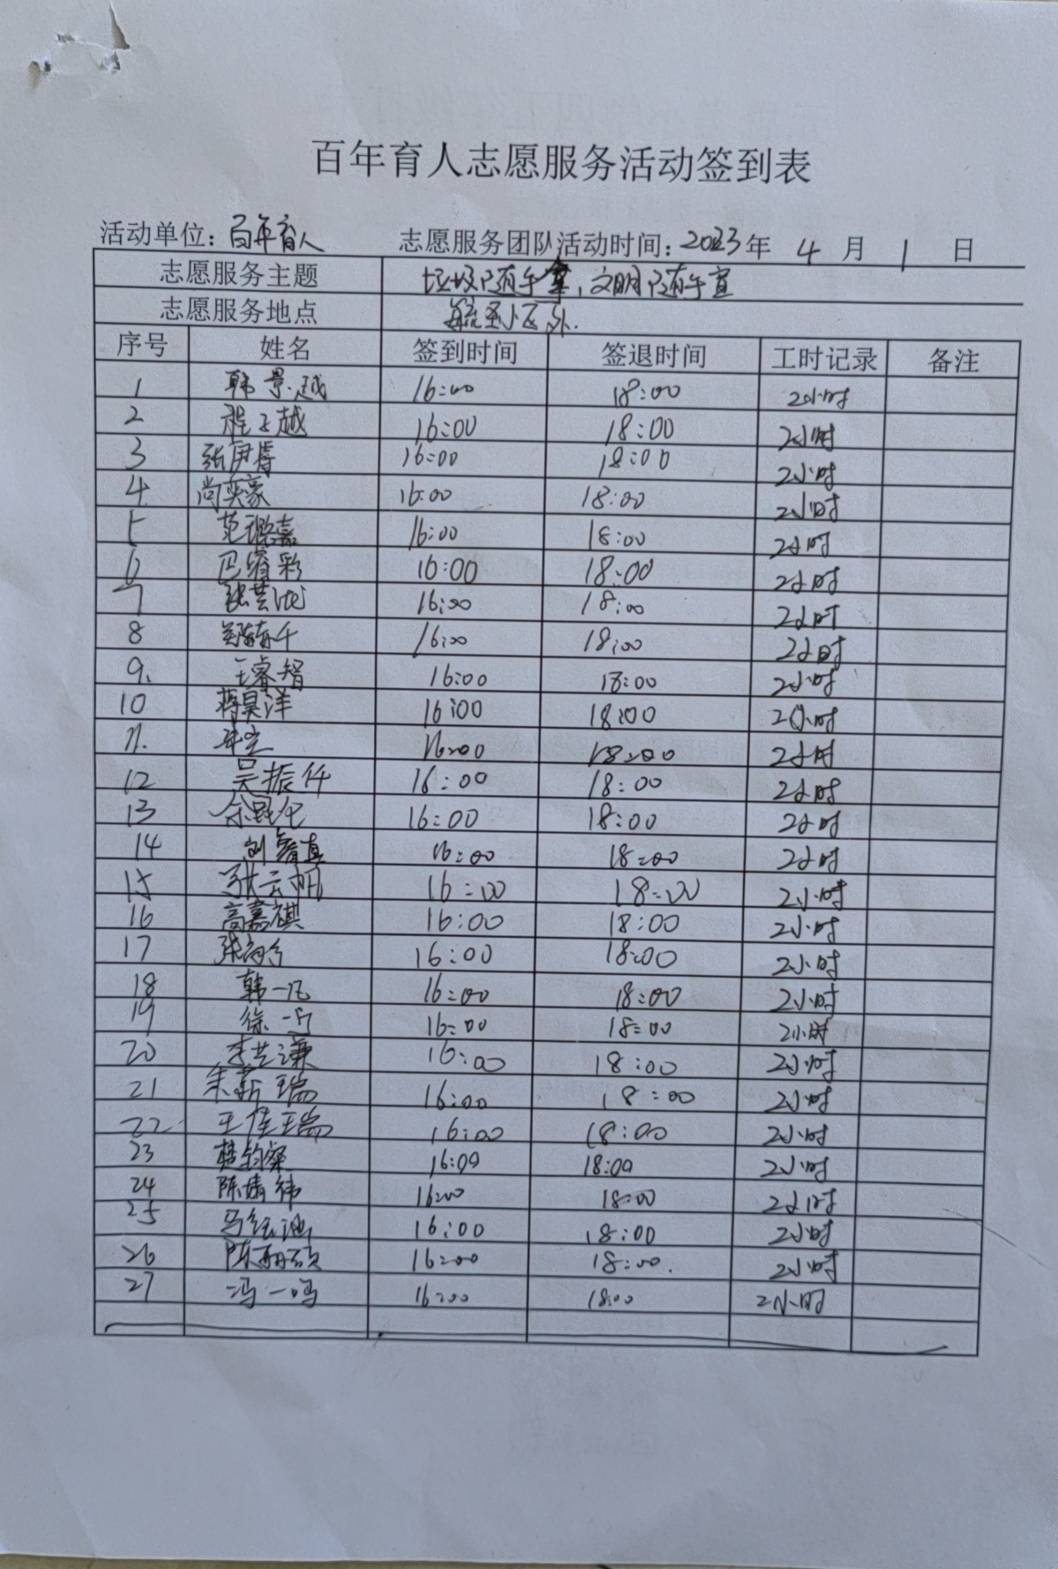 百年育人志愿服务活动签到表
活动单位：百年育人 志愿服务团队活动时间：2023年 4 月 1 日
志愿服务主题 垃圾随手拿，文明随手宣
志愿服务地点 小区外.
序号 姓名 签到时间 签退时间 工时记录 备注
1 韩景越 16:00 18:00 2小时
2 程 越 16:00 18:00 2小时
3 张伊 16:00 18:00 2小时
4 尚奕豪 16:00 18:00 2小时
5 范 嘉 16:00 18:00 2小时
6 巴睿彩 16:00 18:00 2小时
7 张 16:00 18:00 2小时
8 16:00 18:00 2小时
9. 王睿智 16:00 18:00 2小时
10 蒋昊洋 16:00 18:00 2小时
11. 16:00 18:00 2小时
12 吴振仟 16:00 18:00 2小时
13 余 16:00 18:00 2小时
14 刘睿真 16:00 18:00 2小时
15 张云帆 16:00 18:00 2小时
16 高嘉祺 16:00 18:00 2小时
17 张 16:00 18:00 2小时
18 韩一凡 16:00 18:00 2小时
19 徐一 16:00 18:00 2小时
20 李 谦 16:00 18:00 2小时
21 朱薪瑞 16:00 18:00 2小时
22 王佳瑞 16:00 18:00 2小时
23 韩钧 16:00 18:00 2小时
24 陈婧祎 16:00 18:00 2小时
25 马 涵 16:00 18:00 2小时
26 陈 硕 16:00 18:00. 2小时
27 冯一鸣 16:00 18:00 2小时